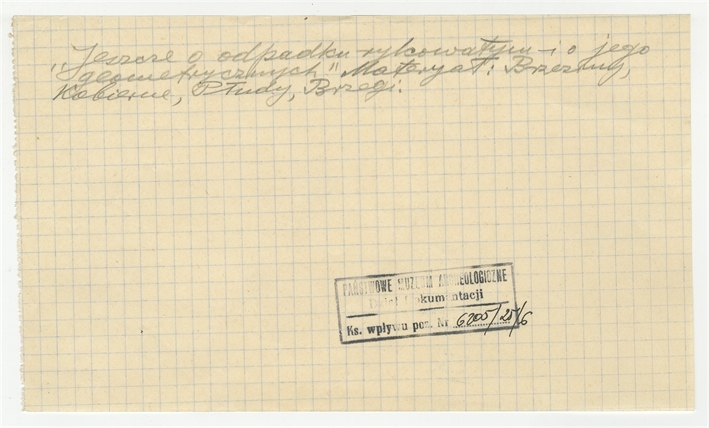 "Jeszcze o odpadku rylcowatym i o jego
geometrycznych" Materyał: Brzeziny,
Kobierne, Płudy, Brzegi.
PAŃSTWOWE MUZEUM ARCHEOLOGICZNE
Dział Dokumentacji
Ks. wpływu poz. Nr 6205/25/6